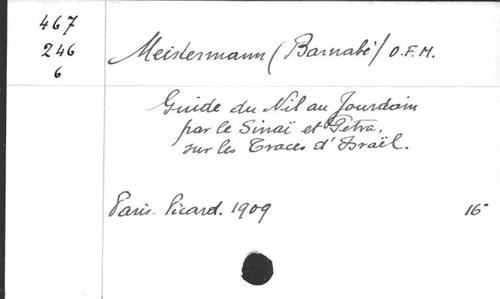 467
246
6
Meistermann (Barnabé) O.F.M.
Guide du Nil au Jourdain
par le Sinaï et Pétra,
sur les Traces d'Israël.
Paris. Picard. 1909 16°